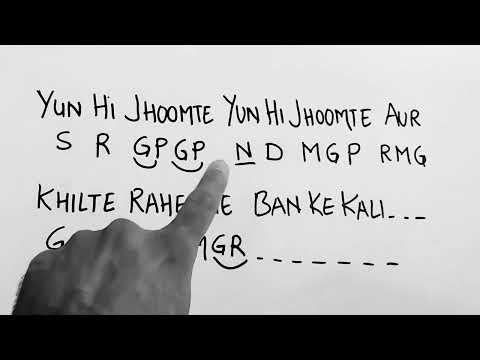 YUN HI JHOOMTE YUN HI JHOOMTE AUR
S R GP GP N D MGP RMG
KHILTE BAN KE KALI...
G GR_ _ _ _ _ _ _